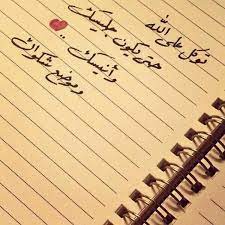 توكل على الله
حتى يكون جليسك
وأنيسك ..
وموضع شكواك